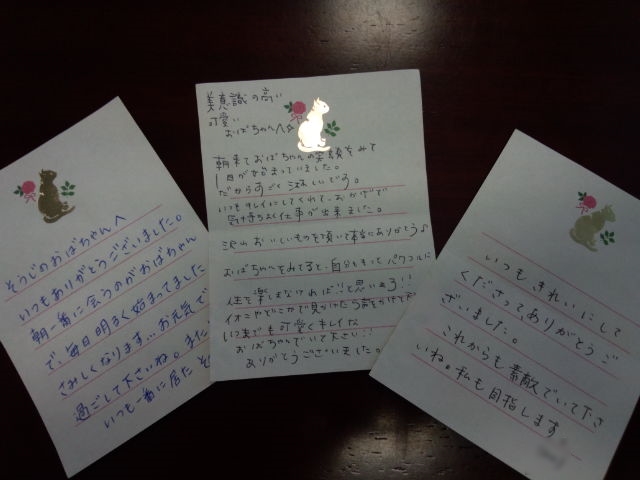 そうじのおばちゃんへ
いつもありがとうございました。
朝一番に会うのがおばちゃん
で、毎日明るく始まってました
さみしくなります…お元気で
過ごして下さいね。また
いつも一番に居た そ
美意識の高い
可愛い
おばちゃんへ☆
朝来ておばちゃんの笑顔をみて
1日が始まっていました。
だからすごく淋しいです。
いつもキレイにしてくれて、おかげで
気持ちよく仕事が出来ました。
沢山おいしいものを頂いて本当にありがとう♪
おばちゃんをみてると、自分ももっとパワフルに
人生を楽しまなければ!!と思います!!
イオンやどこかで見かけたら声をかけて下
いつまでも可愛くキレイな
おばちゃんでいて下さい!!
ありがとうございました。
いつもきれいにして
くださって、ありがとうご
ざいました。
これからも素敵でいて下さ
いね。私も目指します